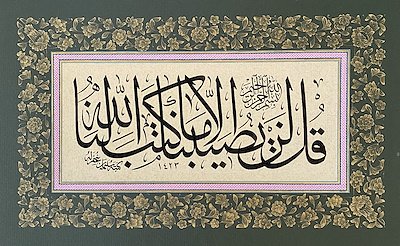 بسم الله الرحمن الرحيم
قل لن يصيبنا إلا ما كتب الله لنا
١٤٢٣